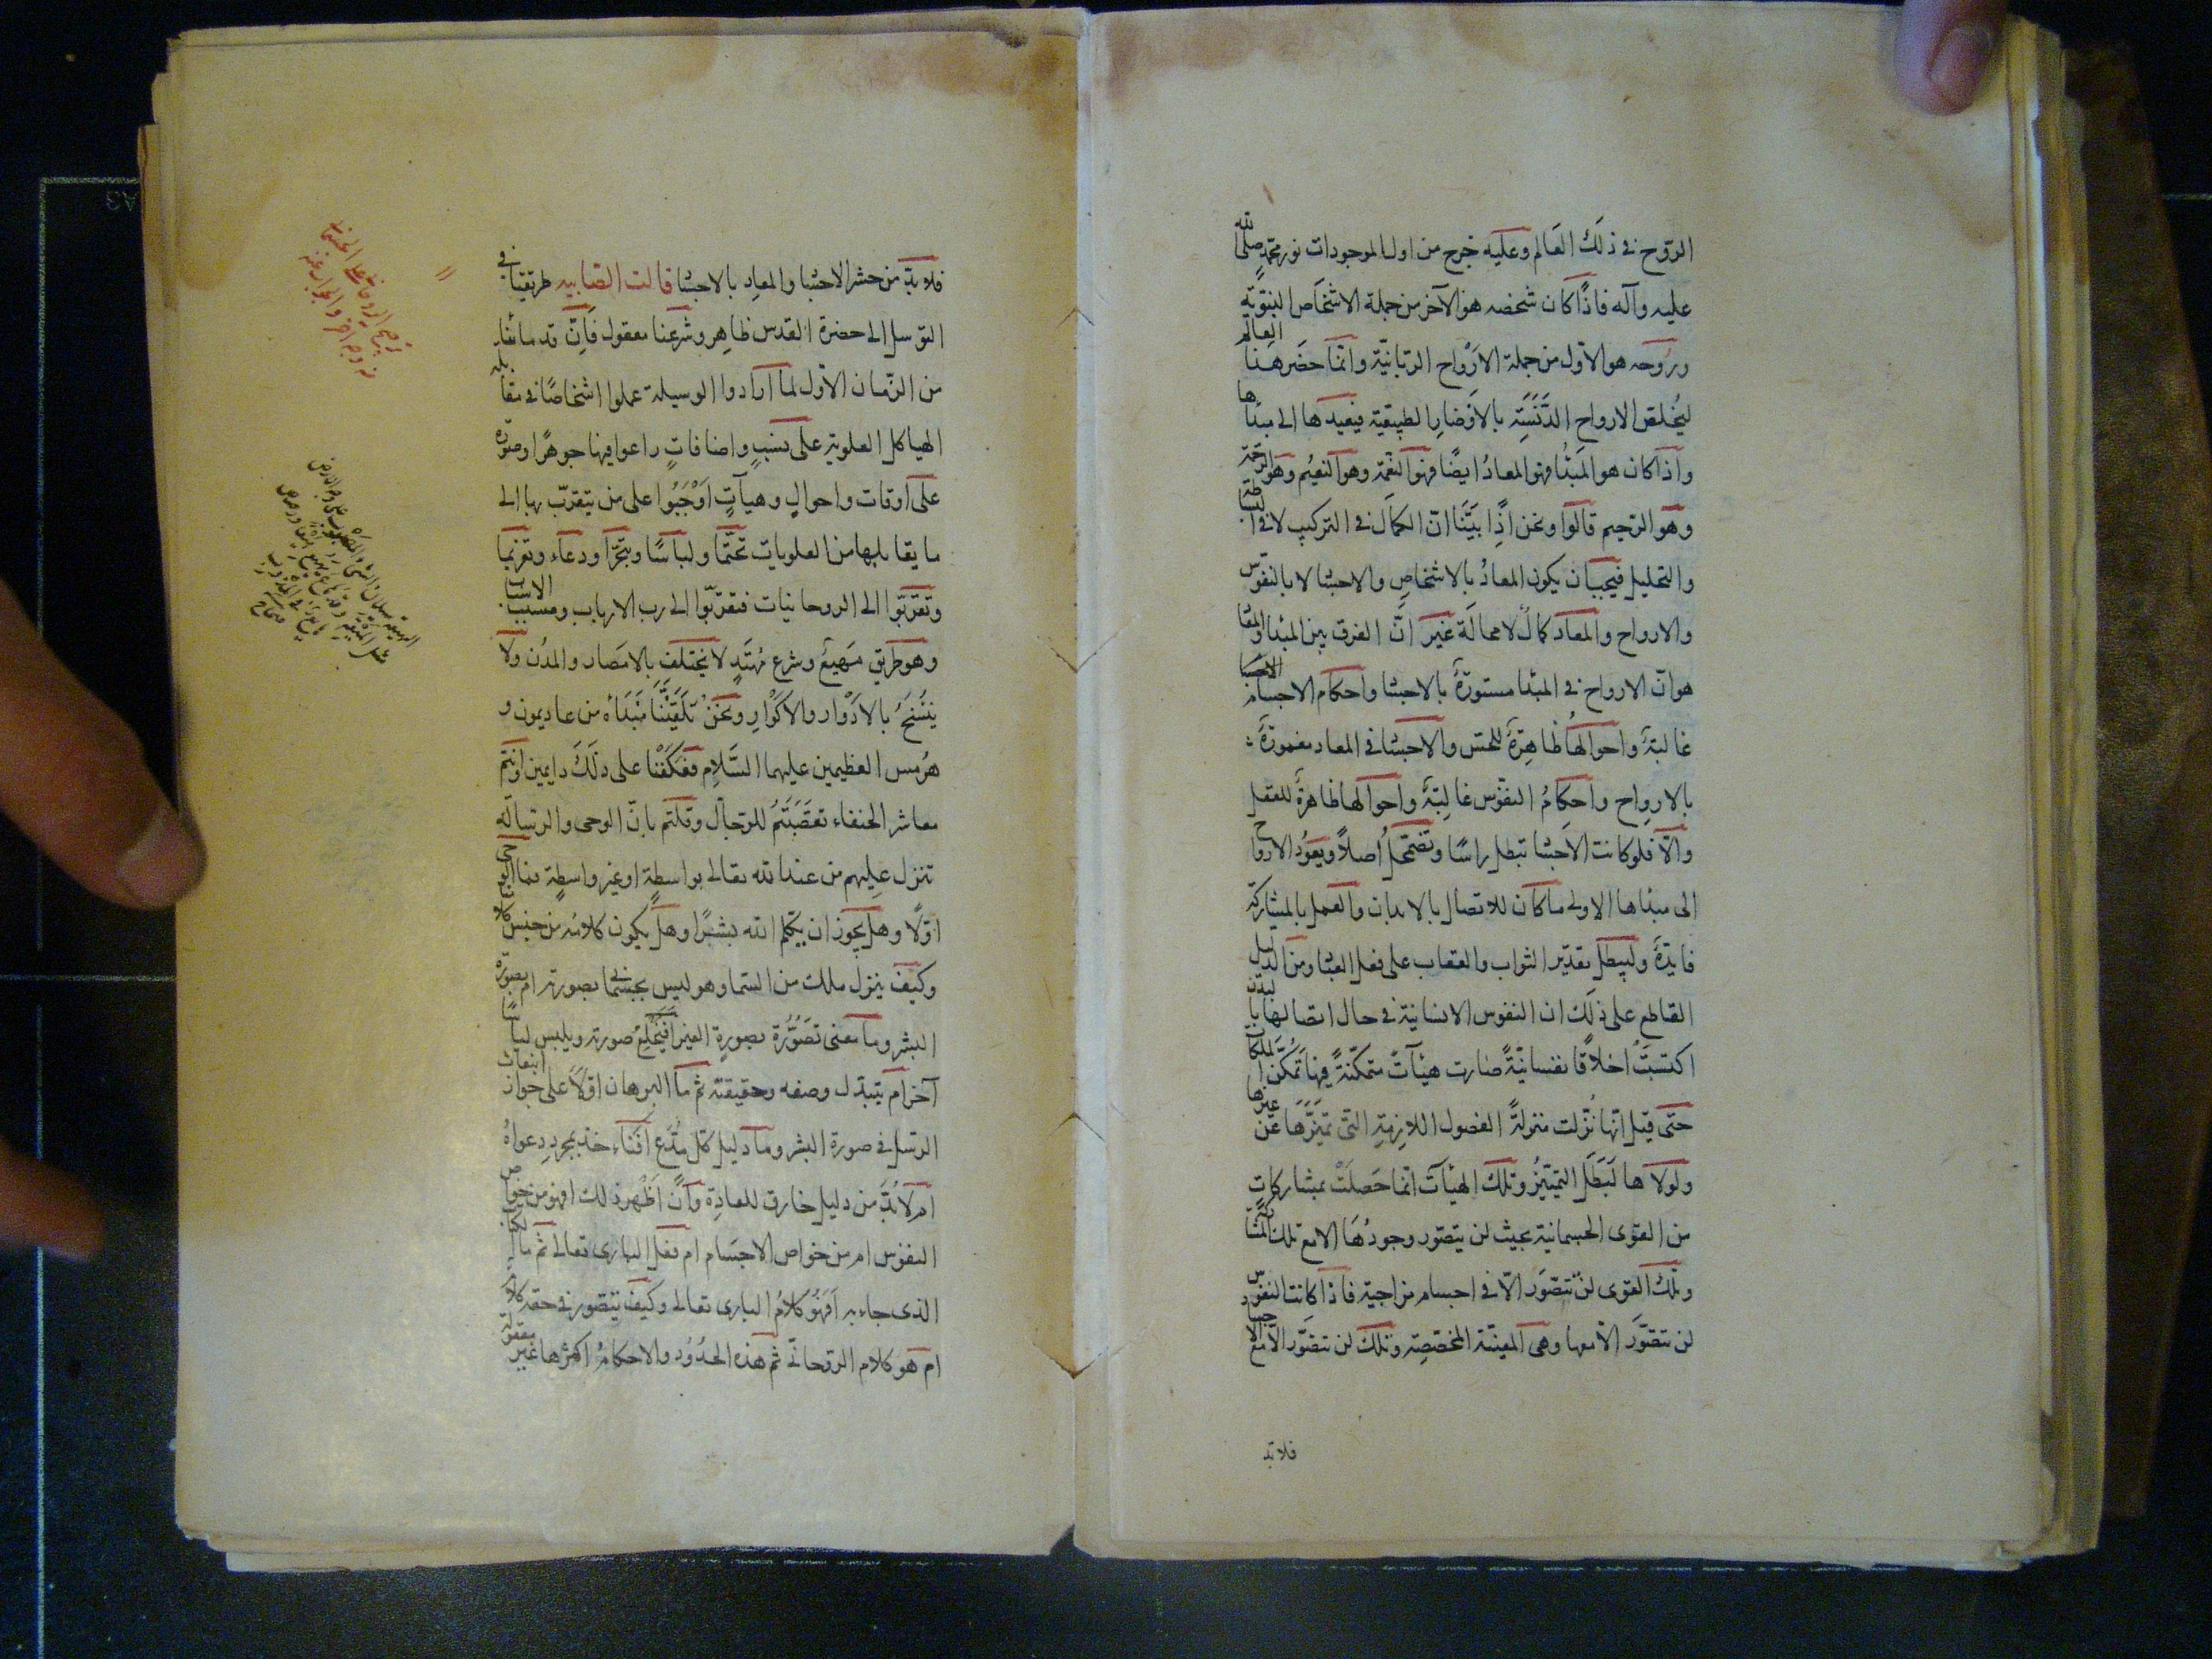 الروح في ذلك العالم وعليه خرج من اول الموجودات نور محمد صلى الله
عليه وآله فاذا كان شخصه هو الآخر من جملة الاشخاص النبوّيّة
وروحه هو الاول من جملة الارواح الربانيّة وانّما حضر هذا العالم
ليخلص الارواح الدنسة بالاوضار الطبيعية فيعيدها الى مبدأها
واذا كان هو المبدأ فهو المعاد ايضًا فهو النعمة وهو النعيم وهو الرحمة
وهو الرحيم قالوا ونحن اذا بيّنا انّ الكمال في التركيب لا في البساطة
والتحليل فيجب ان يكون المعاد بالاشخاص والاجساد لا بالنفوس
والارواح والمعاد كمال لا محالة غير انّ الفرق بين المبدأ والمعاد
هو انّ الارواح في المبدأ مستورة بالاجساد واحكام الاجساد
غالبة واحوالها ظاهرة للحس والاجساد في المعاد مغمورة
بالارواح واحكام النفوس غالبة واحوالها ظاهرة للعقل
والّا فلو كانت الاجساد تبطل راسًا وتضمحل اصلًا ويعود الارواح
الى مبدأها الاولى ما كان للاتصال بالابدان والعمل بالمشاركة
فايدة ولبطل تقدير الثواب والعقاب على فعل العباد ومن الدليل
القاطع على ذلك ان النفوس الانسانية في حال اتصالها بالبدن
اكتسبت اخلاقًا نفسانيّةً صارت هيآت متمكّنةً فيها تمكّن الملكات
حتى قيل انّها نزلت منزلة الفصول اللازمة التي تميّزها عن غيرها
ولولاها لبطل التمييز وتلك الهيآت انّما حصلت بمشاركات
من القوى الجسمانية بحيث لن يتصور وجودها الا مع تلك المشاركة
وتلك القوى لن تتصور الّا في اجسام مزاجية فاذا كانت النفوس
لن تتصور الّا معها وهى المعيّنة المخصصة وتلك لن تتصور الّا مع الاجساد
فلا بد
فلا بدّ من حشر الاجساد والمعاد بالاجساد قالت الصابيه طريقنا في
التوسل الى حضرة القدس ظاهر وشرعنا معقول فانّ قدمائنا
من الزمان الاول لما ارادوا الوسيلة عملوا اشخاصًا في مقابلة
الهياكل العلوية على نسبٍ واضافاتٍ راعوا فيها جوهرًا وصورة
على اوقات واحوالٍ وهيآتٍ اوجبوا على من يتقرّب بها الى
ما يقابلها من العلويات تختّمًا ولباسًا وتبخّرًا ودعاء وتعزيمًا
وتقرّبوا الى الروحانيات فتقرّبوا الى رب الارباب ومسبب الاسباب
وهو طريق مهيع وشرع مهتدٍ لا يختلف بالامصار والمدن ولا
ينسخ بالادوار والاكوار ونحن تلقينا مبدأه من عاديمون و
هرمس العظيمين عليهما السلام فعكفنا على ذلك دايمين وانتم
معاشر الحنفاء تعصّبتم للرجال وقلتم بانّ الوحى والرسالة
تنزل عليهم من عند الله تعالى بواسطةٍ او غير واسطةٍ فما الوحى
اوّلًا وهل يجوز ان يكلّم الله بشرًا وهل يكون كلامه من جنس كلامنا
وكيف ينزل ملك من السما وهو ليس بجسمانى بصورته ام بصورة
البشر وما معنى تصوّره بصورة الغير افيخلع صورته ويلبس لباسًا
آخر ام يتبدّل وصفه وحقيقته ثم ما البرهان اوّلًا على جواز انبعاث
الرسل في صورة البشر وما دليل كلّ مدّع افناءخذ بمجرد دعواه
ام لا بدّ من دليل خارق للعادة وان اظهر ذلك افهو من خواص
النفوس ام من خواص الاجسام ام فعل البارى تعالى ثم ما الكتاب
الذى جاء به افهو كلام البارى تعالى وكيف يتصور في حقه كلام
ام هو كلام الروحانى ثم هذه الحدود والاحكام اكثرها غير معقولة